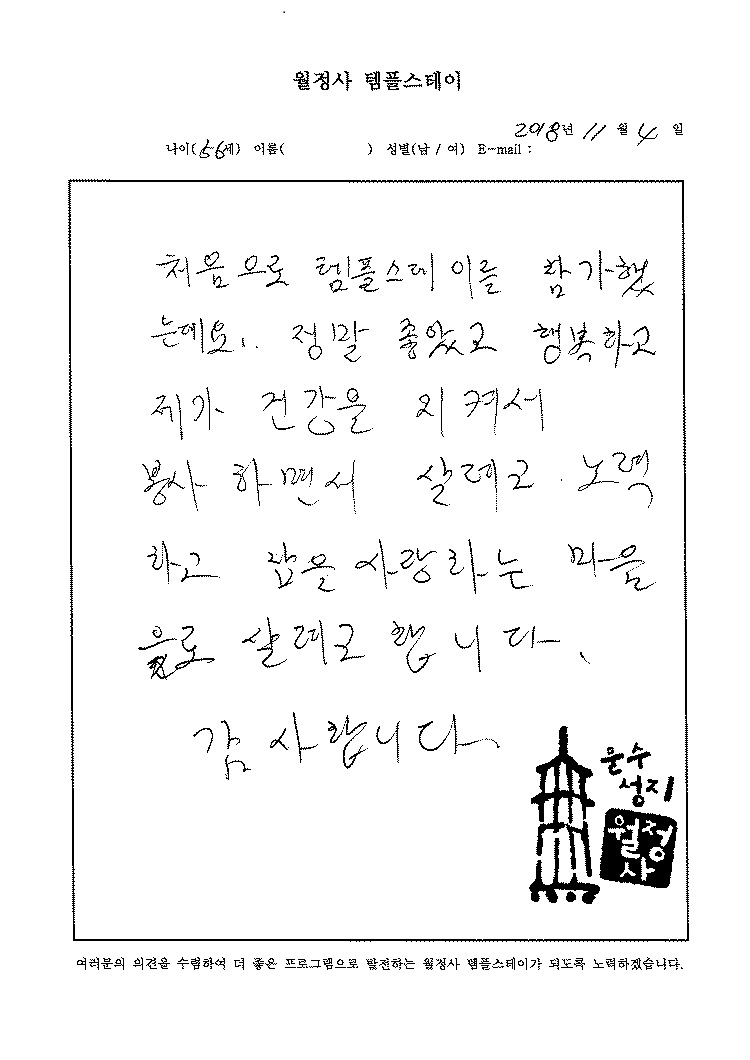 월정사 템플스테이
2018년 11월 4일
나이(56세) 이름( ) 성별(남 / 여) E-mail :
처음으로 템플스테이를 참가했
는데요.. 정말 좋았고 행복하고
제가 건강을 지켜서
봉사 하면서 살려고 노력
하고 삶을 사랑하는 마음
으로 살려고 합니다.
감사합니다.
문수
성지
월정
사
여러분의 의견을 수렴하여 더 좋은 프로그램으로 발전하는 월정사 템플스테이가 되도록 노력하겠습니다.